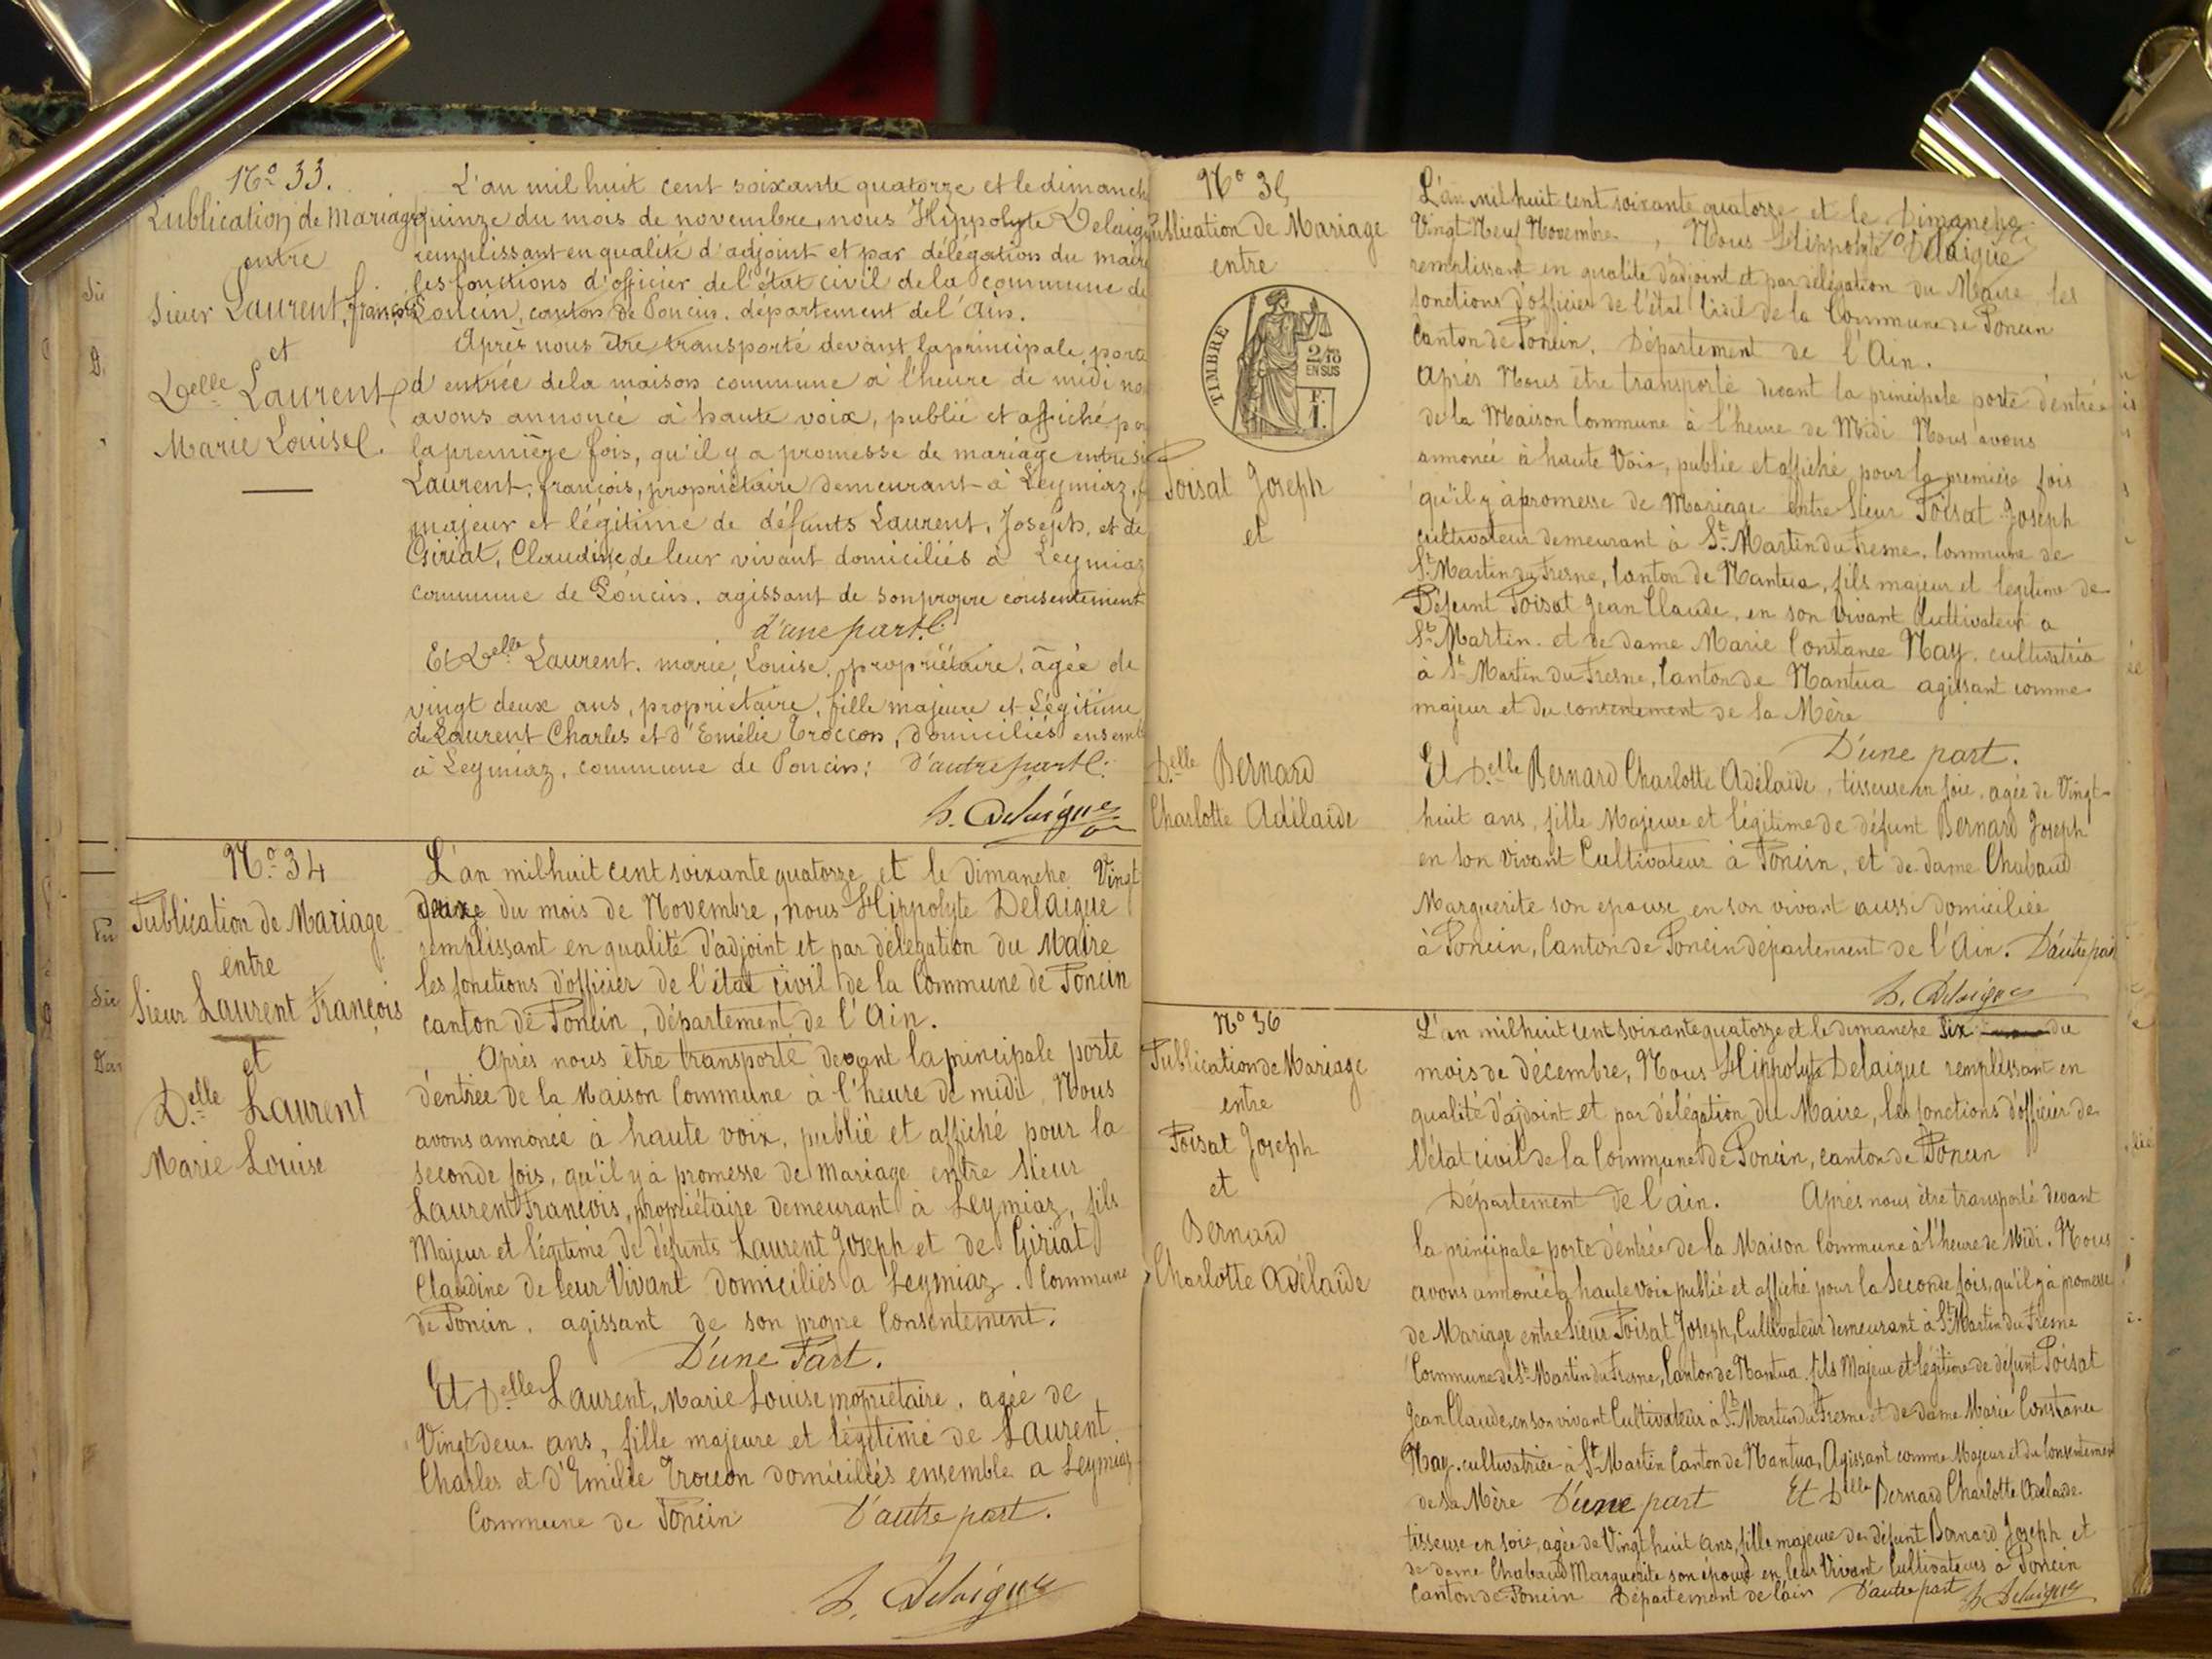 No 33.
Publication de Mariage
entre
Sieur Laurent, françois
et
Delle Laurent
Marie Louise.
L'an mil huit cent soixante quatorze et le dimanche
quinze du mois de novembre, nous Hippolyte Delaigue
remplissant en qualité d'adjoint et par délégation du maire
les fonctions d'officier de l'état civil de la commune de
Poncin, canton de Poncin, département de l'Ain.
Après nous être transporté devant la principale porte
d'entrée de la maison commune à l'heure de midi no
avons annoncé à haute voix, publié et affiché po
la première fois, qu'il y a promesse de mariage entre si
Laurent, françois, propriétaire demeurant à Leymiaz, f
majeur et légitime de défunts Laurent, Joseph, et de
Giriat, Claudine de leur vivant domiciliés à Leymiaz
commune de Poncin, agissant de son propre consentement
d'une part.
Et Delle Laurent, marie, Louise, propriétaire, âgée de
vingt deux ans, propriétaire, fille majeure et Légitime
de Laurent Charles et d'Emélie Troccon, domiciliés ensemb
à Leymiaz, commune de Poncin; d'autre part.
h. Delaigue
No 34
Publication de Mariage
entre
Sieur Laurent François
et
Delle Laurent
Marie Louise
L'an mil huit cent soixante quatorze et le dimanche Vingt
deuxe du mois de Novembre, nous Hippolyte Delaigue
remplissant en qualité d'adjoint et par délégation du Maire
les fonctions d'officier de l'état civil de la Commune de Poncin
canton de Poncin, département de l'Ain.
Après nous être transporté devant la principale porte
d'entrée de la Maison Commune à l'heure de midi, Nous
avons annoncé à haute voix, publié et affiché pour la
seconde fois, qu'il y à promesse de mariage entre Sieur
Laurent François, propriétaire demeurant à Leymiaz, fils
Majeur et légitime de défunts Laurent Joseph et de Giriat
Claudine de leur Vivant domiciliés a Leymiaz. Commune
de Poncin, agissant de son propre Consentement.
D'une Part.
Et Delle Laurent, Marie Louise propriétaire, agée de
Vingt deux ans, fille majeure et légitime de Laurent
Charles et d'Emilie Troccon domiciliés ensemble a Leymiaz
Commune de Poncin D'autre part.
h. Delaigue
No 35
Publication de Mariage
entre
TIMBRE
2/10
EN SUS
F.
1.
Poisat Joseph
et
Delle Bernard
Charlotte Adélaide
L'an mil huit cent soixante quatorze et le Dimanche
Vingt Neuf Novembre, Nous Hippolyte Delaigue
remplissant en qualité d'adjoint et par délégation du Maire les
fonctions d'officier de l'état Civil de la Commune de Poncin
Canton de Poncin, Département de l'Ain.
Après Nous être transporté devant la principale porte d'entrée
de la Maison Commune à l'heure de Midi Nous avons
annoncé à haute Voix, publié et affiché pour la première fois
qu'il y à promesse de Mariage entre Sieur Poisat Joseph
cultivateur demeurant à St Martin du Fresne, Commune de
St Martin du Fresne, Canton de Nantua, fils majeur et légitime de
Défunt Poisat Jean Claude, en son vivant Cultivateur a
St Martin. et de dame Marie Constance Nay, cultivatrice
à St Martin du Fresne, Canton de Nantua agissant comme
majeur et du consentement de sa Mère
D'une part.
Et Delle Bernard Charlotte Adélaide, tisseuse en soie, agée de Vingt-
huit ans, fille Majeure et légitime de défunt Bernard Joseph
en son vivant Cultivateur à Poncin, et de dame Chabaud
Marguerite son épouse, en son vivant aussi domiciliée
à Poncin, Canton de Poncin département de l'Ain. D'autre part
h. Delaigue
No 36
Publication de Mariage
entre
Poisat Joseph
et
Bernard
Charlotte Adélaide
L'an mil huit cent soixante quatorze et le dimanche Six du
mois de décembre, Nous Hippolyte Delaigue remplissant en
qualité d'adjoint et par délégation du Maire, les fonctions d'officier de
l'état civil de la Commune de Poncin, canton de Poncin
Département de l'ain. Après nous être transporté devant
la principale porte d'entrée de la Maison Commune à l'heure de Midi. Nous
avons annoncé a haute voix publié et affiché pour la Seconde fois, qu'il y à promesse
de Mariage entre Sieur Poisat Joseph, Cultivateur demeurant à St Martin du Fresne
Commune de St Martin du Fresne, Canton de Nantua, fils Majeur et légitime de défunt Poisat
Jean Claude, en son vivant Cultivateur à St Martin du Fresne et de dame Marie Constance
Nay, cultivatrice à St Martin Canton de Nantua, Agissant comme Majeur et du Consentement
de sa Mère D'une part Et Delle Bernard Charlotte Adelaide
tisseuse en soie, agée de Vingt huit ans, fille majeure de défunt Bernard Joseph et
de dame Chabaud Marguerite son épouse en leur Vivant Cultivateurs à Poncin
Canton de Poncin Département de l'ain D'autre part h. Delaigue